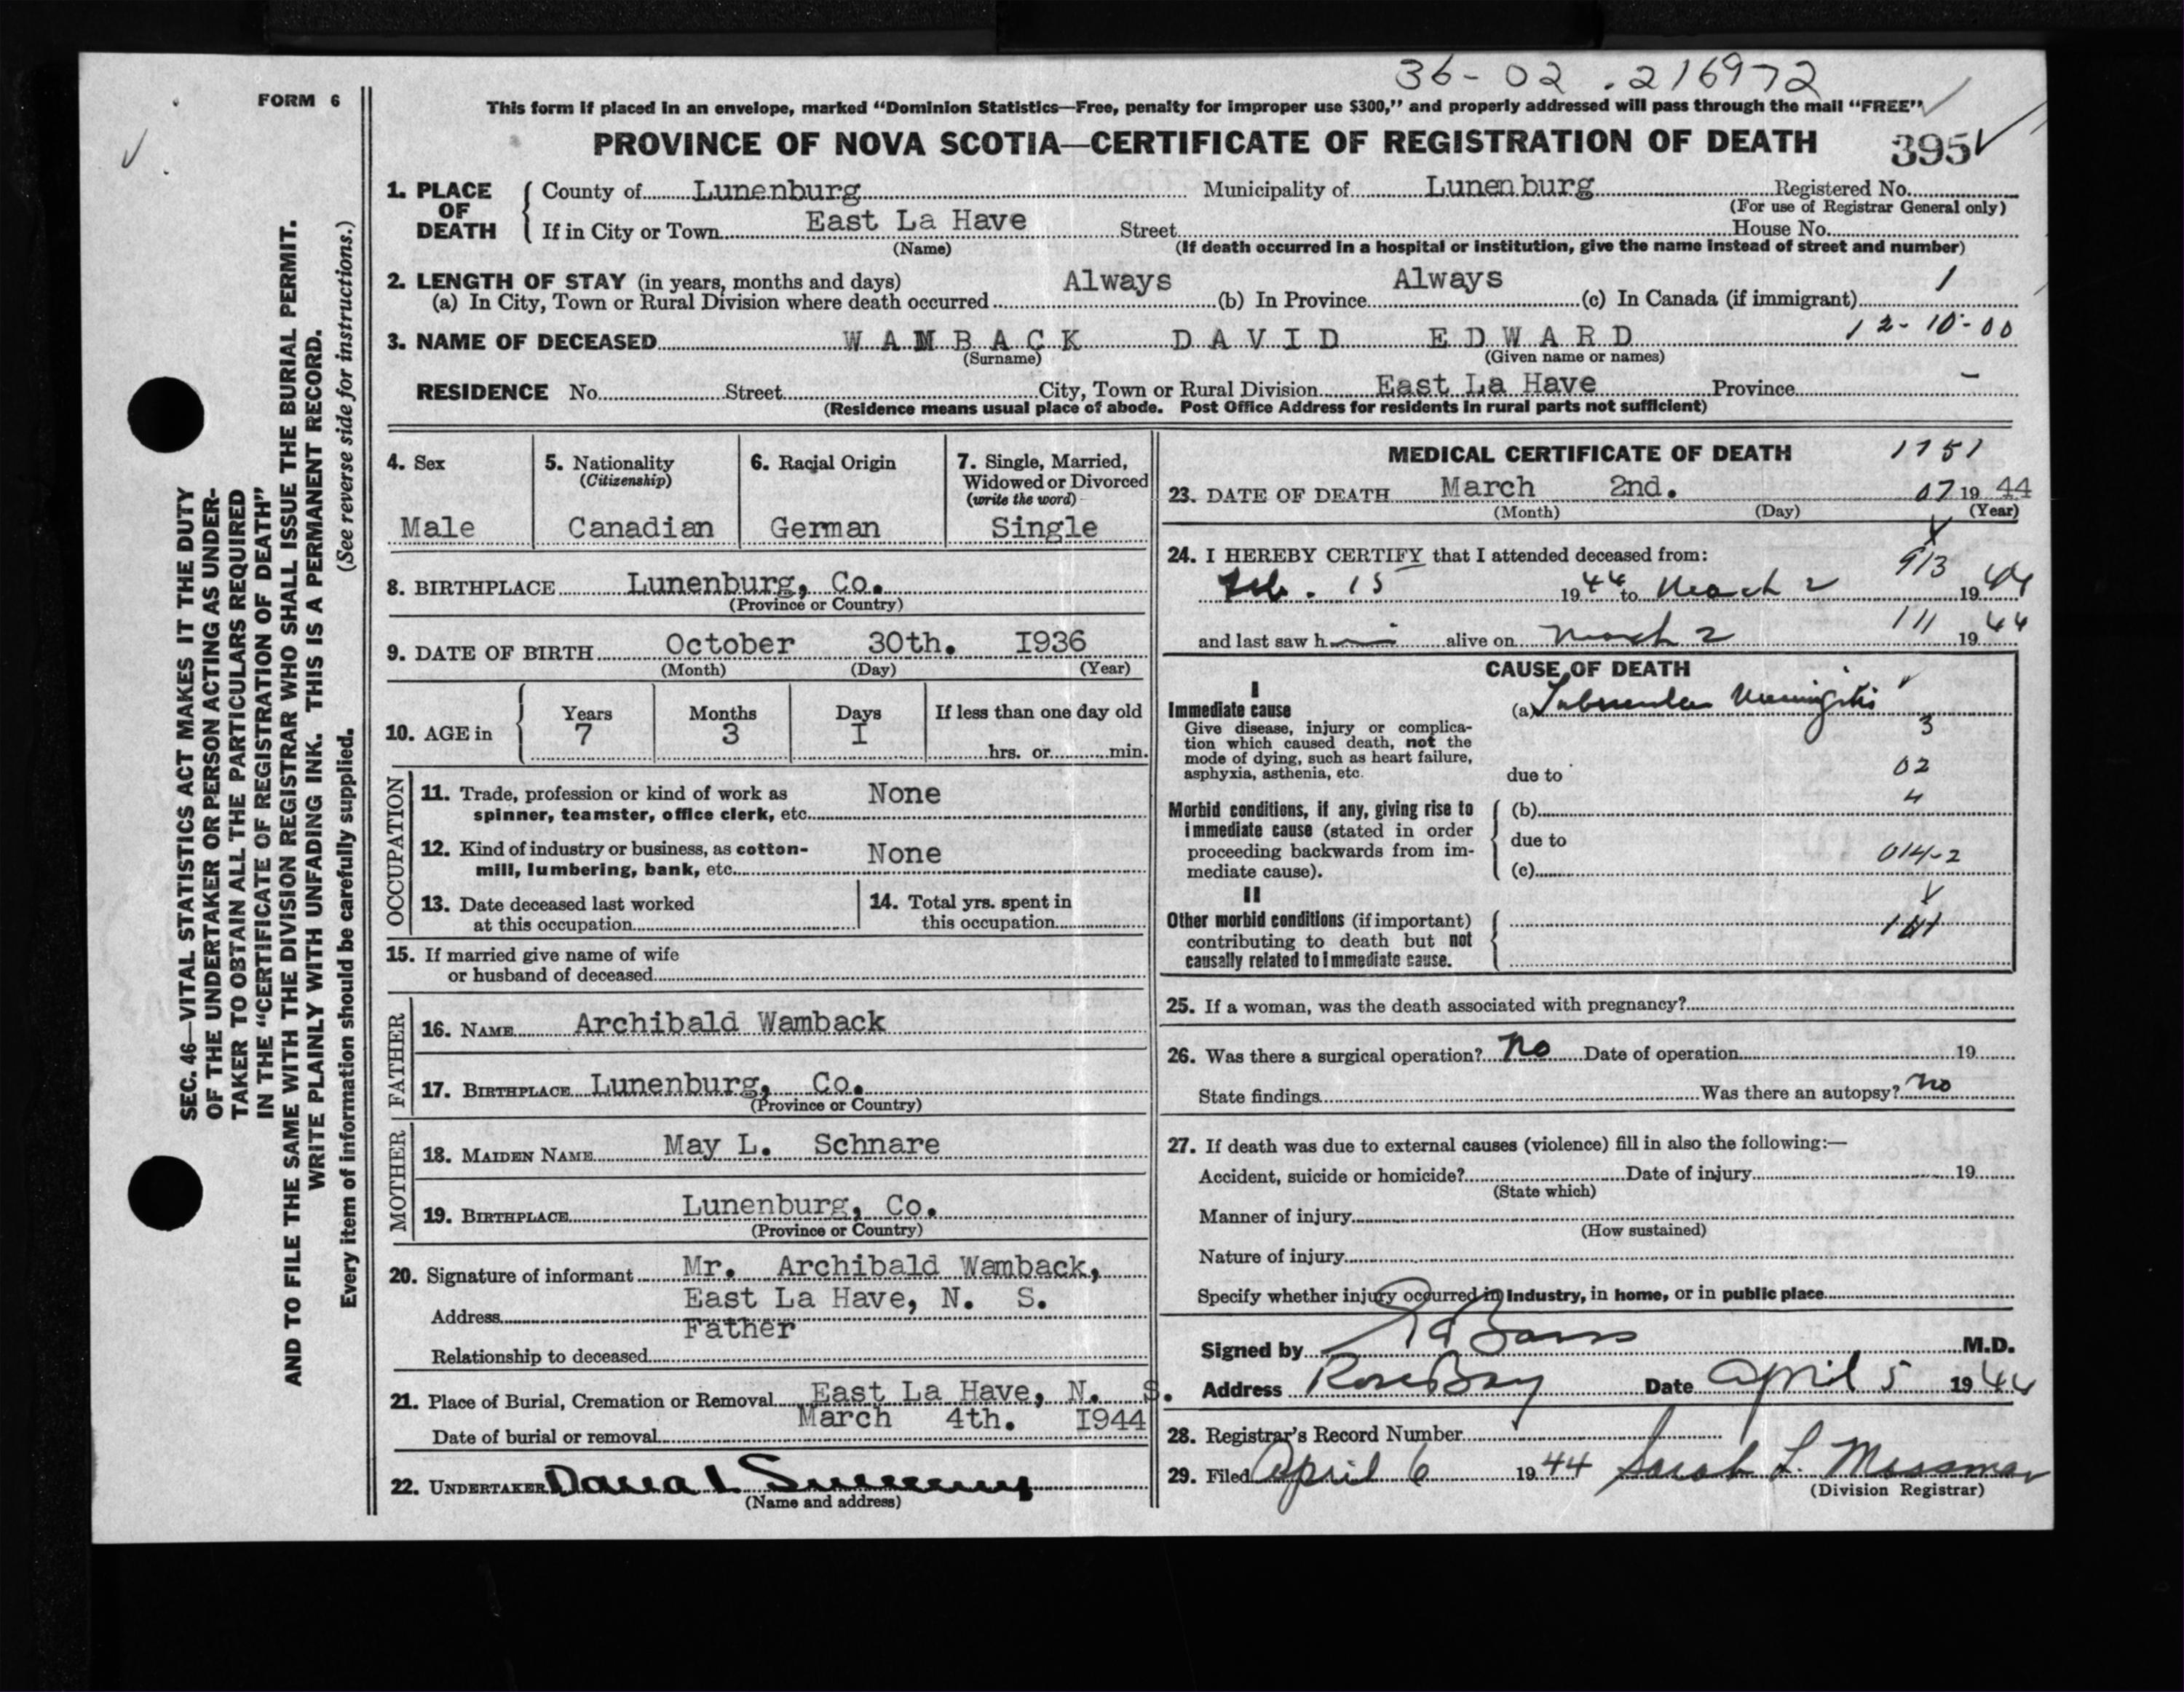 36-02 .216972
FORM 6
This form if placed in an envelope, marked "Dominion Statistics—Free, penalty for improper use $300," and properly addressed will pass through the mail "FREE"
PROVINCE OF NOVA SCOTIA—CERTIFICATE OF REGISTRATION OF DEATH 395
1. PLACE OF DEATH County of Lunenburg Municipality of Lunenburg Registered No.
(For use of Registrar General only)
If in City or Town East La Have Street House No.
(Name) (If death occurred in a hospital or institution, give the name instead of street and number)
2. LENGTH OF STAY (in years, months and days)
(a) In City, Town or Rural Division where death occurred Always (b) In Province Always (c) In Canada (if immigrant) 1
3. NAME OF DECEASED WAMBACK DAVID EDWARD 12-10-00
(Surname) (Given name or names)
RESIDENCE No. Street City, Town or Rural Division East La Have Province -
(Residence means usual place of abode. Post Office Address for residents in rural parts not sufficient)
4. Sex
Male
5. Nationality
(Citizenship)
Canadian
6. Racial Origin
German
7. Single, Married,
Widowed or Divorced
(write the word)
Single
8. BIRTHPLACE Lunenburg, Co.
(Province or Country)
9. DATE OF BIRTH October 30th. I936
(Month) (Day) (Year)
10. AGE in Years Months Days If less than one day old
7 3 I hrs. or min.
OCCUPATION
11. Trade, profession or kind of work as
spinner, teamster, office clerk, etc. None
12. Kind of industry or business, as cotton-
mill, lumbering, bank, etc. None
13. Date deceased last worked
at this occupation
14. Total yrs. spent in
this occupation
15. If married give name of wife
or husband of deceased
FATHER
16. NAME Archibald Wamback
17. BIRTHPLACE Lunenburg, Co.
(Province or Country)
MOTHER
18. MAIDEN NAME May L. Schnare
19. BIRTHPLACE Lunenburg, Co.
(Province or Country)
20. Signature of informant Mr. Archibald Wamback,
Address East La Have, N. S.
Relationship to deceased Father
21. Place of Burial, Cremation or Removal East La Have, N. S.
Date of burial or removal March 4th. I944
22. UNDERTAKER
(Name and address)
MEDICAL CERTIFICATE OF DEATH 1751
23. DATE OF DEATH March 2nd. 07 19 44
(Month) (Day) (Year)
24. I HEREBY CERTIFY that I attended deceased from: 913
Feb. 15 19 44 to March 2 19 44
and last saw h alive on March 2 111 19 44
CAUSE OF DEATH
I
Immediate cause (a) Tubercular Meningitis
Give disease, injury or complica-
tion which caused death, not the
mode of dying, such as heart failure,
asphyxia, asthenia, etc. due to
3
02
4
Morbid conditions, if any, giving rise to (b)
immediate cause (stated in order due to
proceeding backwards from im-
mediate cause). (c) 014-2
II
Other morbid conditions (if important)
contributing to death but not
causally related to immediate cause.
25. If a woman, was the death associated with pregnancy?
26. Was there a surgical operation? No Date of operation 19
State findings Was there an autopsy? No
27. If death was due to external causes (violence) fill in also the following:—
Accident, suicide or homicide? Date of injury 19
(State which)
Manner of injury
(How sustained)
Nature of injury
Specify whether injury occurred in Industry, in home, or in public place
Signed by M.D.
Address Rose Bay Date April 5 19 44
28. Registrar's Record Number
29. Filed April 6 19 44 Sarah L. Mossman
(Division Registrar)
SEC. 46—VITAL STATISTICS ACT MAKES IT THE DUTY
OF THE UNDERTAKER OR PERSON ACTING AS UNDER-
TAKER TO OBTAIN ALL THE PARTICULARS REQUIRED
IN THE "CERTIFICATE OF REGISTRATION OF DEATH"
AND TO FILE THE SAME WITH THE DIVISION REGISTRAR WHO SHALL ISSUE THE BURIAL PERMIT.
WRITE PLAINLY WITH UNFADING INK. THIS IS A PERMANENT RECORD.
Every item of information should be carefully supplied. (See reverse side for instructions.)